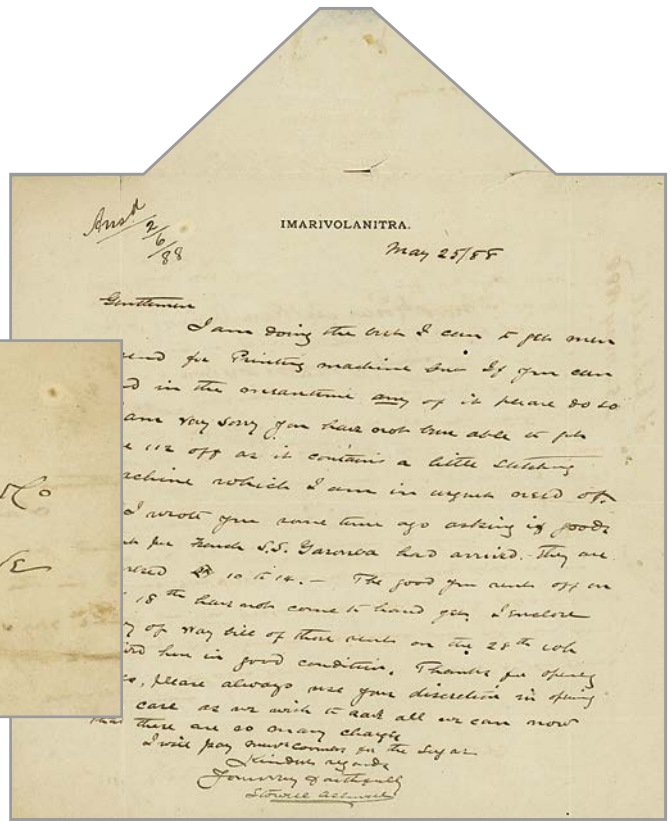 Ansd 2/6/88
IMARIVOLANITRA.
May 25/88
Gentlemen
I am doing the best I can to get men
send for Printing machine &c If you can
d in the meantime any of it please do so
am very sorry you have not been able to get
e 112 off as it contains a little stitching
achine which I am in urgent need of.
I wrote you some time ago asking if goods
per French S.S. Garonba had arrived. they are
10 to 14. - The good you sent off on
18th have not come to hand yet, I enclose
y of way bill of those sent on the 28th
here in good condition. Thanks for opening
please always use your discretion in opening
case as we wish to all we can now
that there are so many charges
I will pay newcomers for the sugar
Kindest regards
Yours very faithfully
& Co